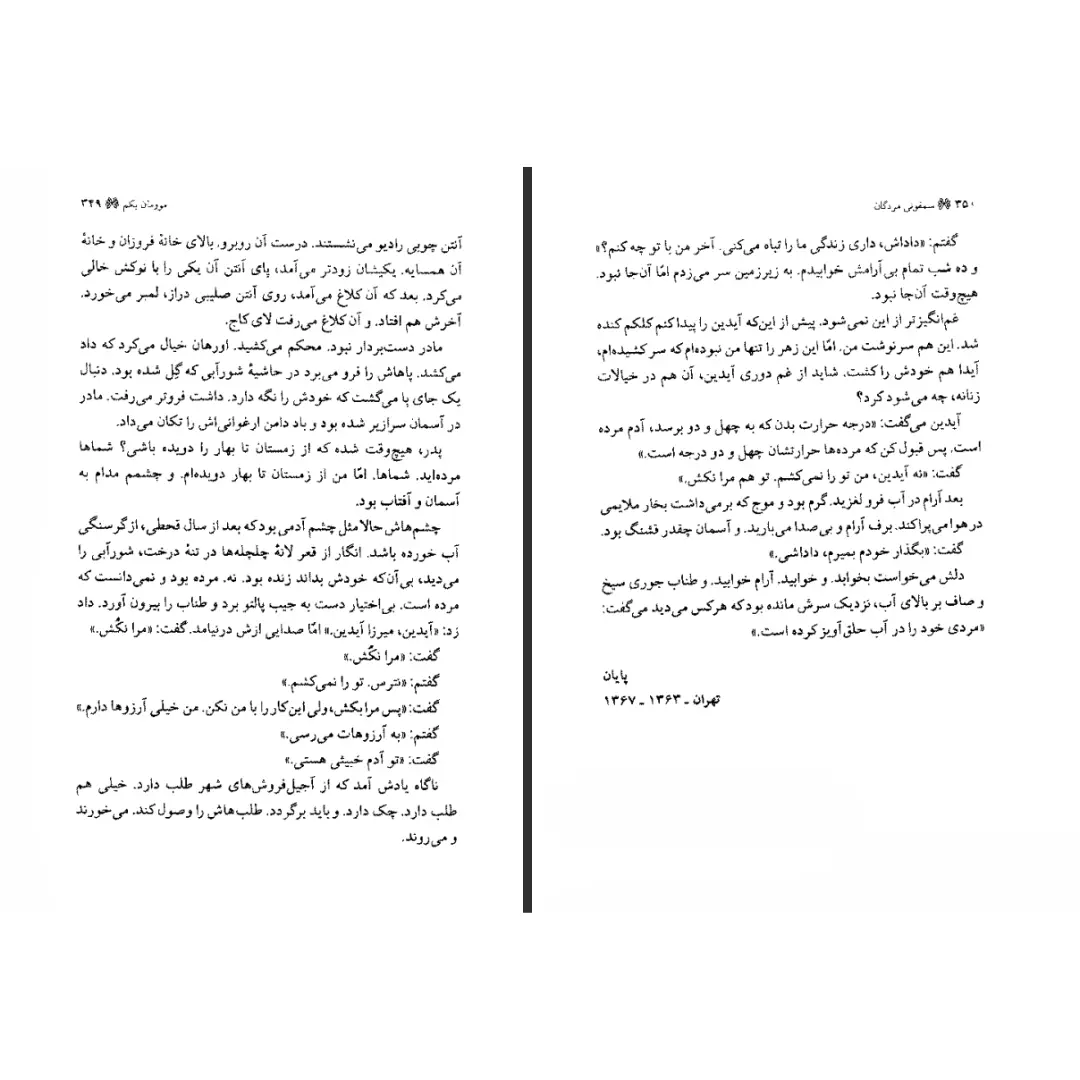 موومان یکم ۳۴۹
آنتن چوبی رادیو می‌نشستند. درست آن روبرو. بالای خانهٔ فروزان و خانهٔ
آن همسایه. یکیشان زودتر می‌آمد، پای آنتن آن یکی را با نوکش خالی
می‌کرد. بعد که آن کلاغ می‌آمد، روی آنتن صلیبی دراز، لمبر می‌خورد.
آخرش هم افتاد. و آن کلاغ می‌رفت لای کاج.
مادر دست‌بردار نبود. محکم می‌کشید. اورهان خیال می‌کرد که داد
می‌کشند. پاهاش را فرو می‌برد در حاشیهٔ شورآبی که گِل شده بود. دنبال
یک جای پا می‌گشت که خودش را نگه دارد. داشت فروتر می‌رفت. مادر
در آسمان سرازیر شده بود و باد دامن ارغوانی‌اش را تکان می‌داد.
پدر، هیچ‌وقت شده که از زمستان تا بهار را دویده باشی؟ شماها
مرده‌اید. شماها. امّا من از زمستان تا بهار دویده‌ام. و چشمم مدام به
آسمان و آفتاب بود.
چشم‌هاش حالا مثل چشم آدمی بود که بعد از سال قحطی، از گرسنگی
آب خورده باشد. انگار از قعر لانهٔ چلچله‌ها در تنهٔ درخت، شورآبی را
می‌دید، بی‌آن‌که خودش بداند زنده بود. نه. مرده بود و نمی‌دانست که
مرده است. بی‌اختیار دست به جیب پالتو برد و طناب را بیرون آورد. داد
زد: «آیدین، میرزا آیدین.» امّا صدایی ازش درنیامد. گفت: «مرا نکُش.»
گفت: «مرا نکُش.»
گفتم: «نترس. تو را نمی‌کشم.»
گفت: «پس مرا بکش، ولی این‌کار را با من نکن. من خیلی آرزوها دارم.»
گفتم: «به آرزوهات می‌رسی.»
گفت: «تو آدم خبیثی هستی.»
ناگاه یادش آمد که از آجیل‌فروش‌های شهر طلب دارد. خیلی هم
طلب دارد. چک دارد. و باید برگردد. طلب‌هاش را وصول کند. می‌خورند
و می‌روند.
۳۵۰ سمفونی مردگان
گفتم: «داداش، داری زندگی ما را تباه می‌کنی. آخر من با تو چه کنم؟»
و ده شب تمام بی‌آرامش خوابیدم. به زیرزمین سر می‌زدم امّا آن‌جا نبود.
هیچ‌وقت آن‌جا نبود.
غم‌انگیزتر از این نمی‌شود. پیش از این‌که آیدین را پیدا کنم کلکم کنده
شد. این هم سرنوشت من. امّا این زهر را تنها من نبوده‌ام که سر کشیده‌ام،
آیدا هم خودش را کشت. شاید از غم دوری آیدین، آن هم در خیالات
زنانه، چه می‌شود کرد؟
آیدین می‌گفت: «درجه حرارت بدن که به چهل و دو برسد، آدم مرده
است. پس قبول کن که مرده‌ها حرارتشان چهل و دو درجه است.»
گفت: «نه آیدین، من تو را نمی‌کشم. تو هم مرا نکش.»
بعد آرام در آب فرو لغزید. گرم بود و موج که برمی‌داشت بخار ملایمی
در هوا می‌پراکند. برف آرام و بی‌صدا می‌بارید. و آسمان چقدر قشنگ بود.
گفت: «بگذار خودم بمیرم، داداشی.»
دلش می‌خواست بخوابد. و خوابید. آرام خوابید. و طناب جوری سیخ
و صاف بر بالای آب، نزدیک سرش مانده بود که هرکس می‌دید می‌گفت:
«مردی خود را در آب حلق‌آویز کرده است.»
پایان
تهران ـ ۱۳۶۳ ـ ۱۳۶۷